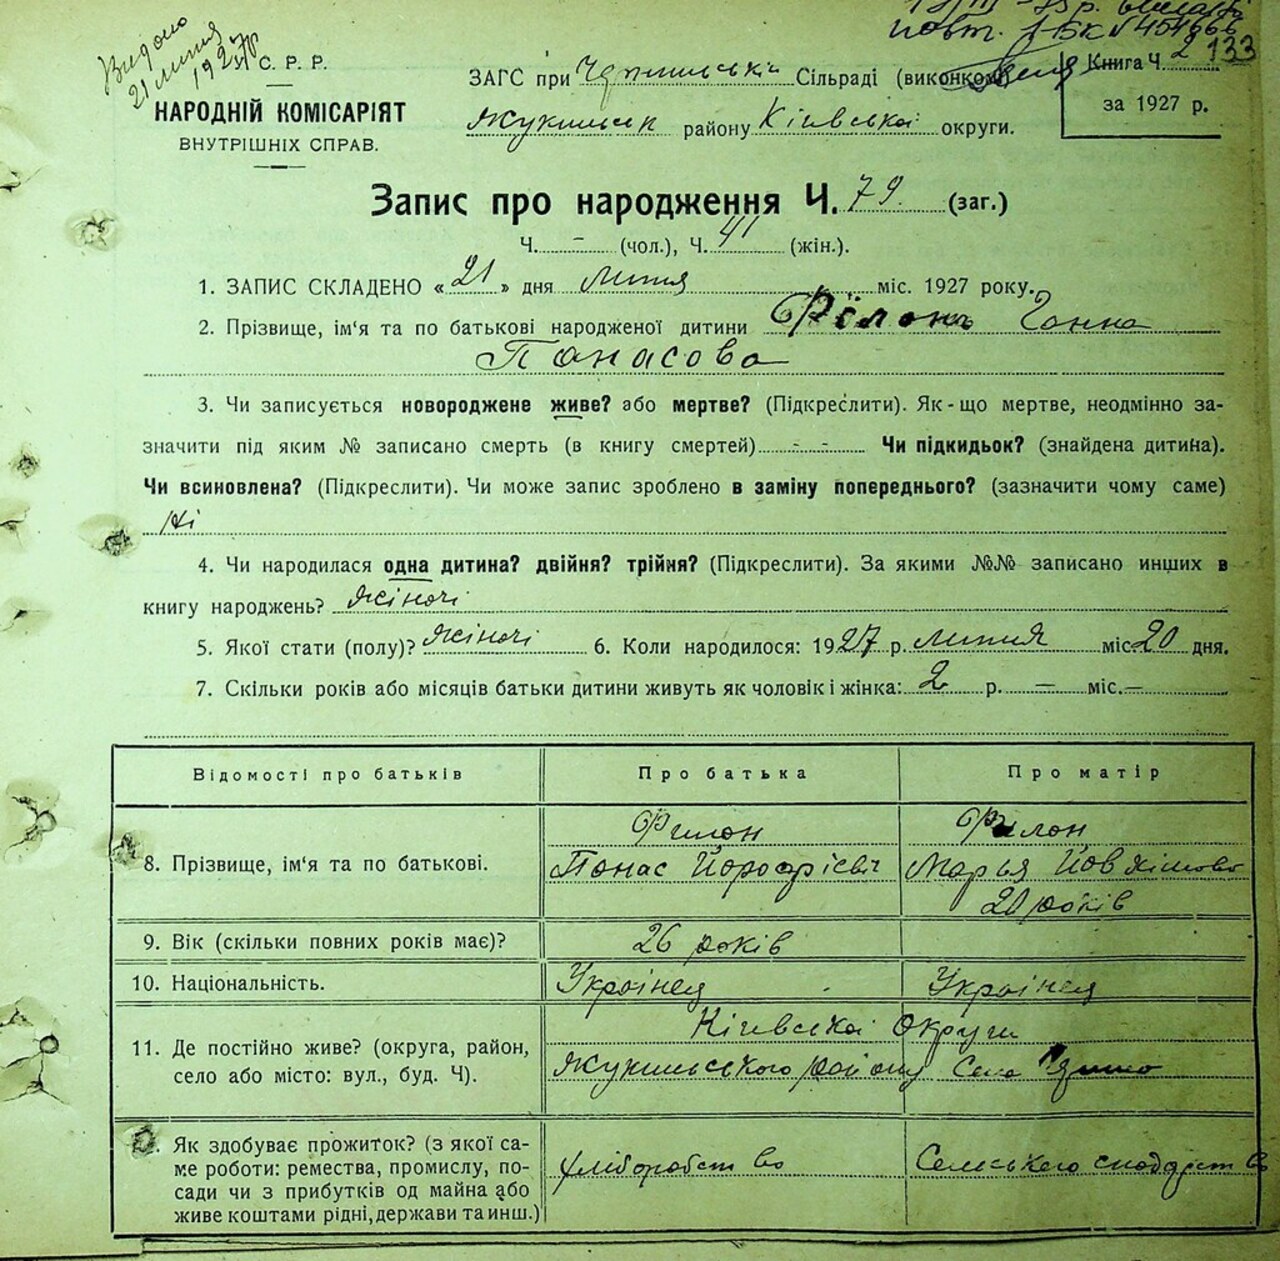 Видано
21 липня
1927 р
С. Р. Р.
НАРОДНІЙ КОМІСАРІЯТ
ВНУТРІШНІХ СПРАВ.
повт.
133
ЗАГС при Сільраді (виконком)
району Київської округи.
Книга Ч. 2
за 1927 р.
Запис про народження Ч. 79. (заг.)
Ч. – (чол.), Ч. 41 (жін.).
1. ЗАПИС СКЛАДЕНО «21» дня липня міс. 1927 року.
2. Прізвище, ім'я та по батькові народженої дитини Філон Ганна
Панасова
3. Чи записується новороджене живе? або мертве? (Підкреслити). Як-що мертве, неодмінно за-
значити під яким № записано смерть (в книгу смертей) Чи підкидьок? (знайдена дитина).
Чи всиновлена? (Підкреслити). Чи може запис зроблено в заміну попереднього? (зазначити чому саме)
Ні
4. Чи народилася одна дитина? двійня? трійня? (Підкреслити). За якими №№ записано инших в
книгу народжень? жіночі
5. Якої стати (полу)? жіночі 6. Коли народилося: 1927 р. липня міс. 20 дня.
7. Скільки років або місяців батьки дитини живуть як чоловік і жінка: 2 р. — міс. —
Відомості про батьків Про батька Про матір
8. Прізвище, ім'я та по батькові. Филон Філон
Панас Йорофієвіч Марья Йовхімова
20 років
9. Вік (скільки повних років має)? 26 років
10. Національність. Українец Українец
11. Де постійно живе? (округа, район, село або місто: вул., буд. Ч). Київської Округи
району Село
Як здобуває прожиток? (з якої са-
ме роботи: ремества, промислу, по-
сади чи з прибутків од майна або
живе коштами рідні, держави та инш.) хліборобство Сельського сподарство